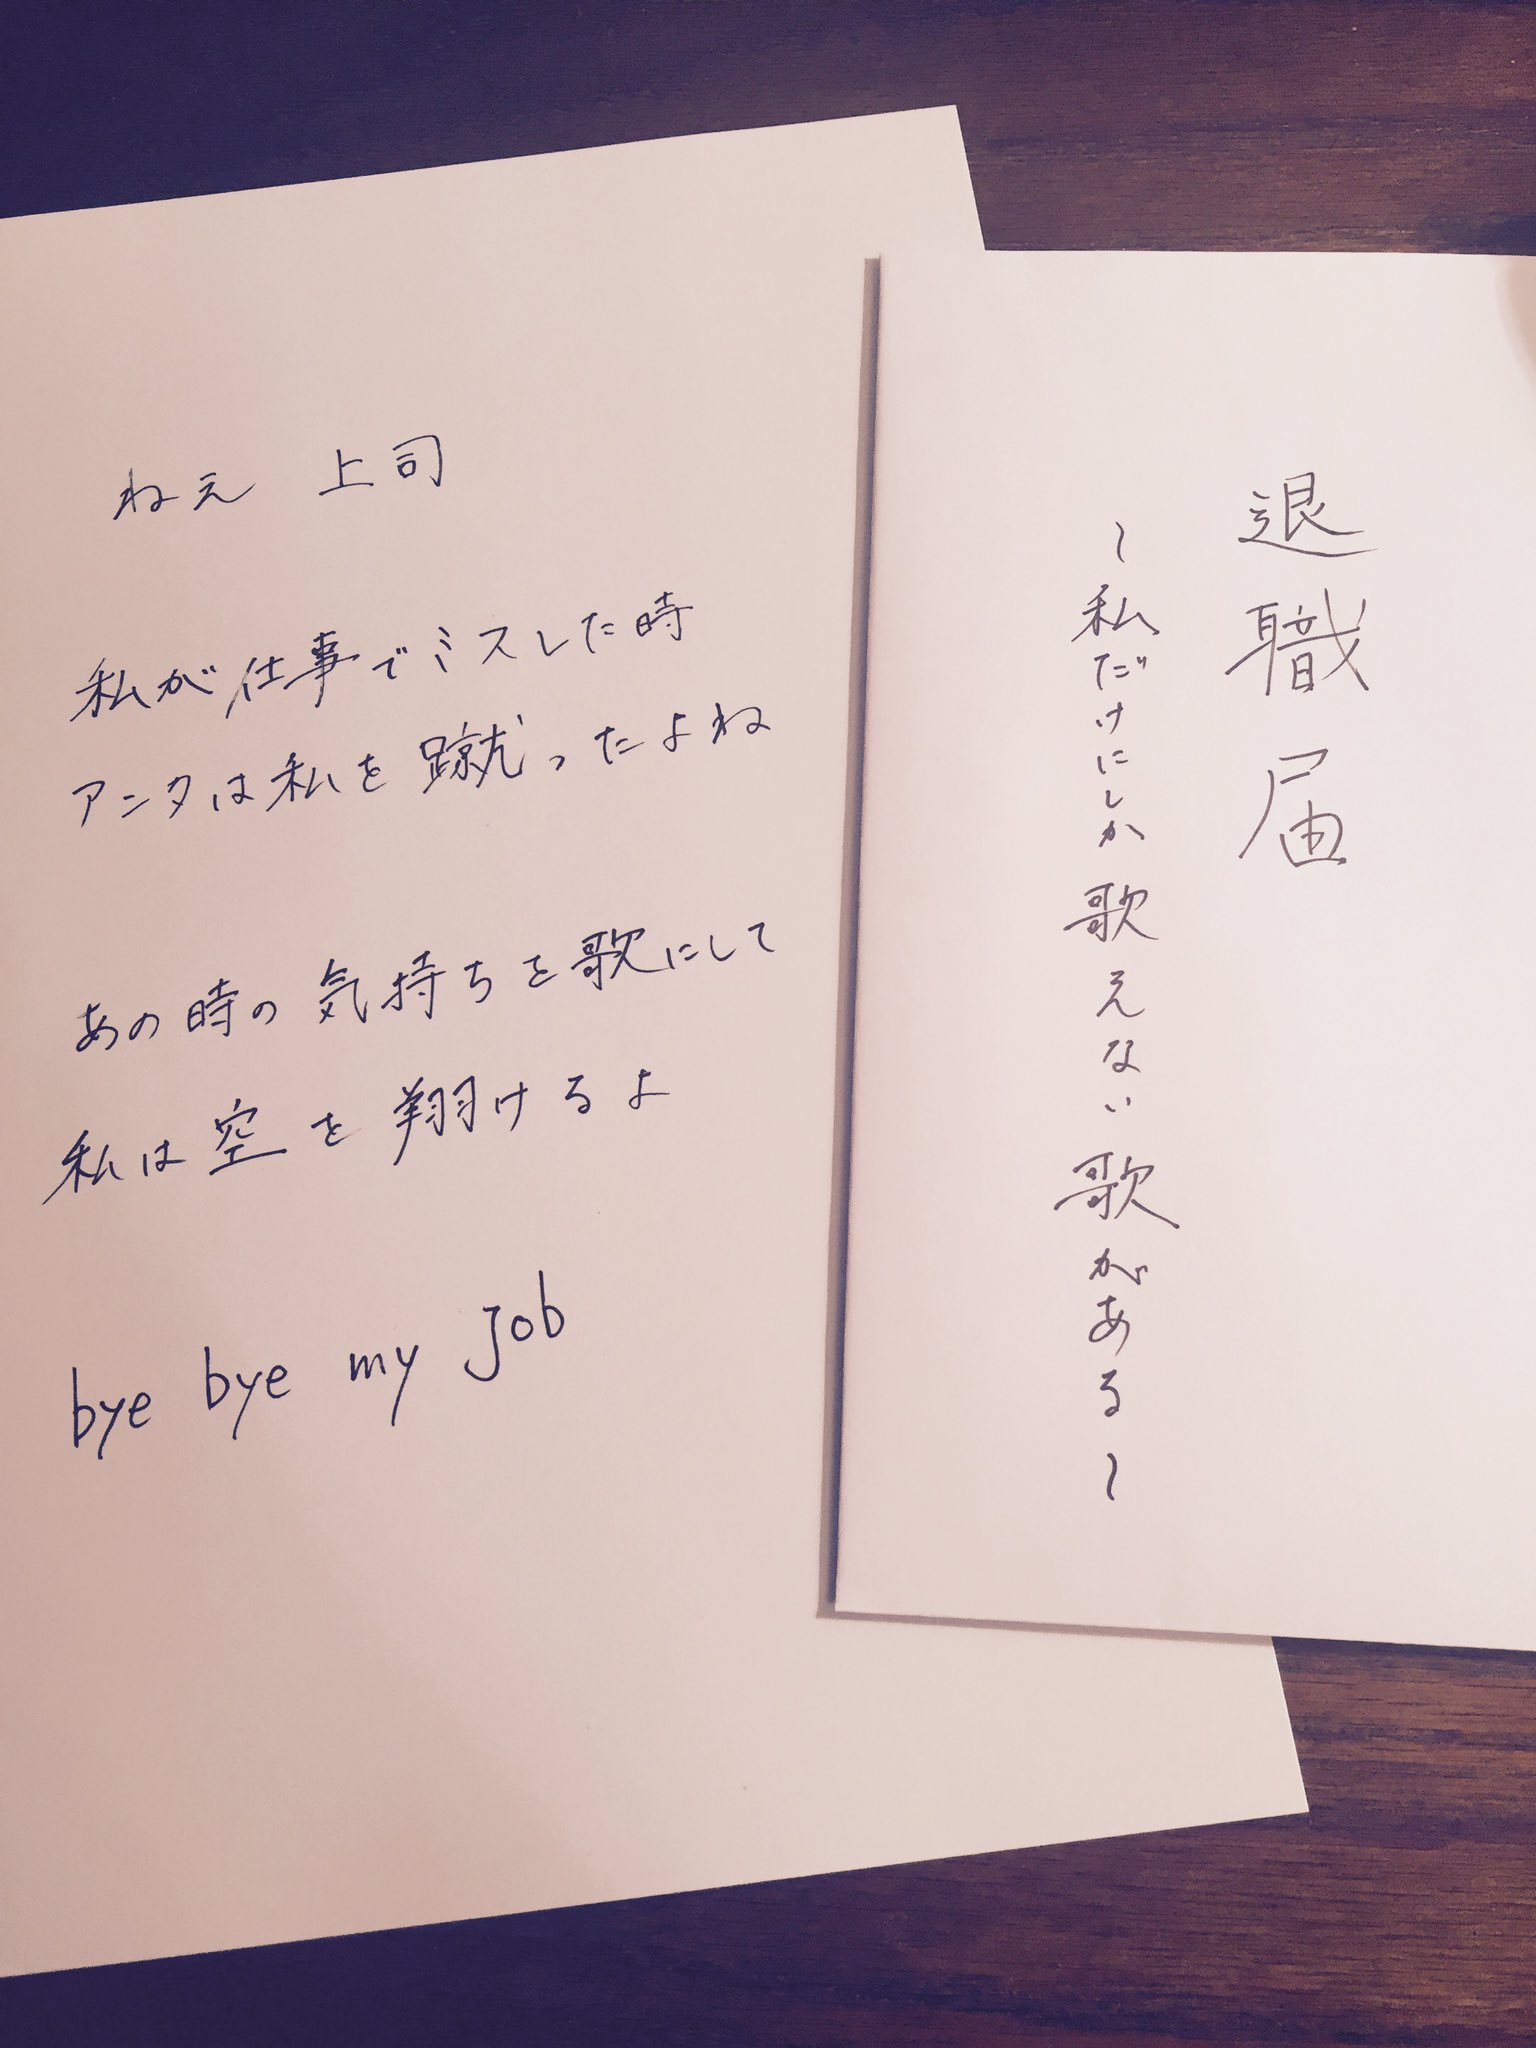 退職届
～私だけにしか歌えない歌がある～
ねえ 上司
私が仕事でミスした時
アンタは私を蹴ったよね
あの時の気持ちを歌にして
私は空を翔けるよ
bye bye my job